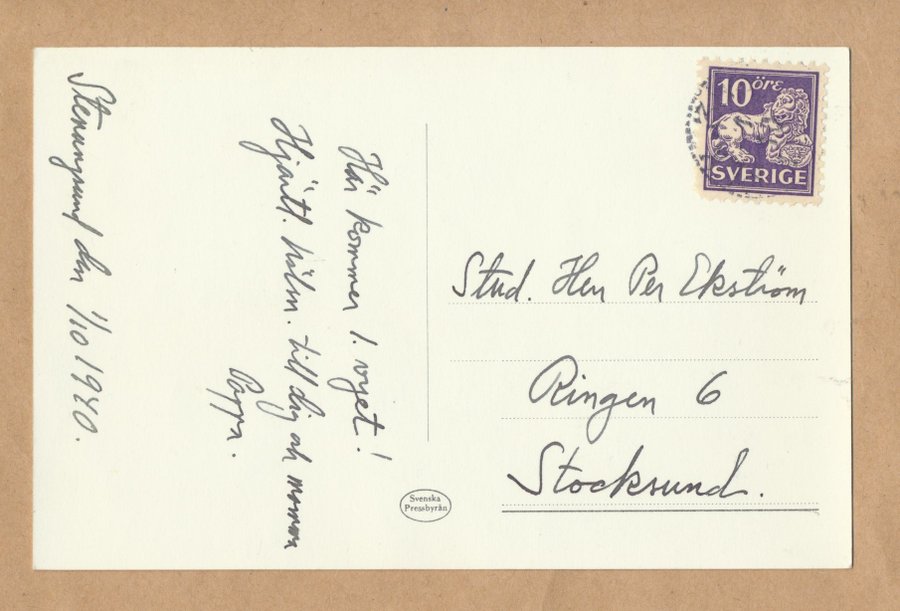 Stenungsund den 1/10 1940.
Här kommer 1. vyet!
Hjärtl. häln. till dig och mamma
Pappa.
10 öre
SVERIGE
Stud. Herr Per Ekström
Ringen 6
Stocksund.
Svenska
Pressbyrån